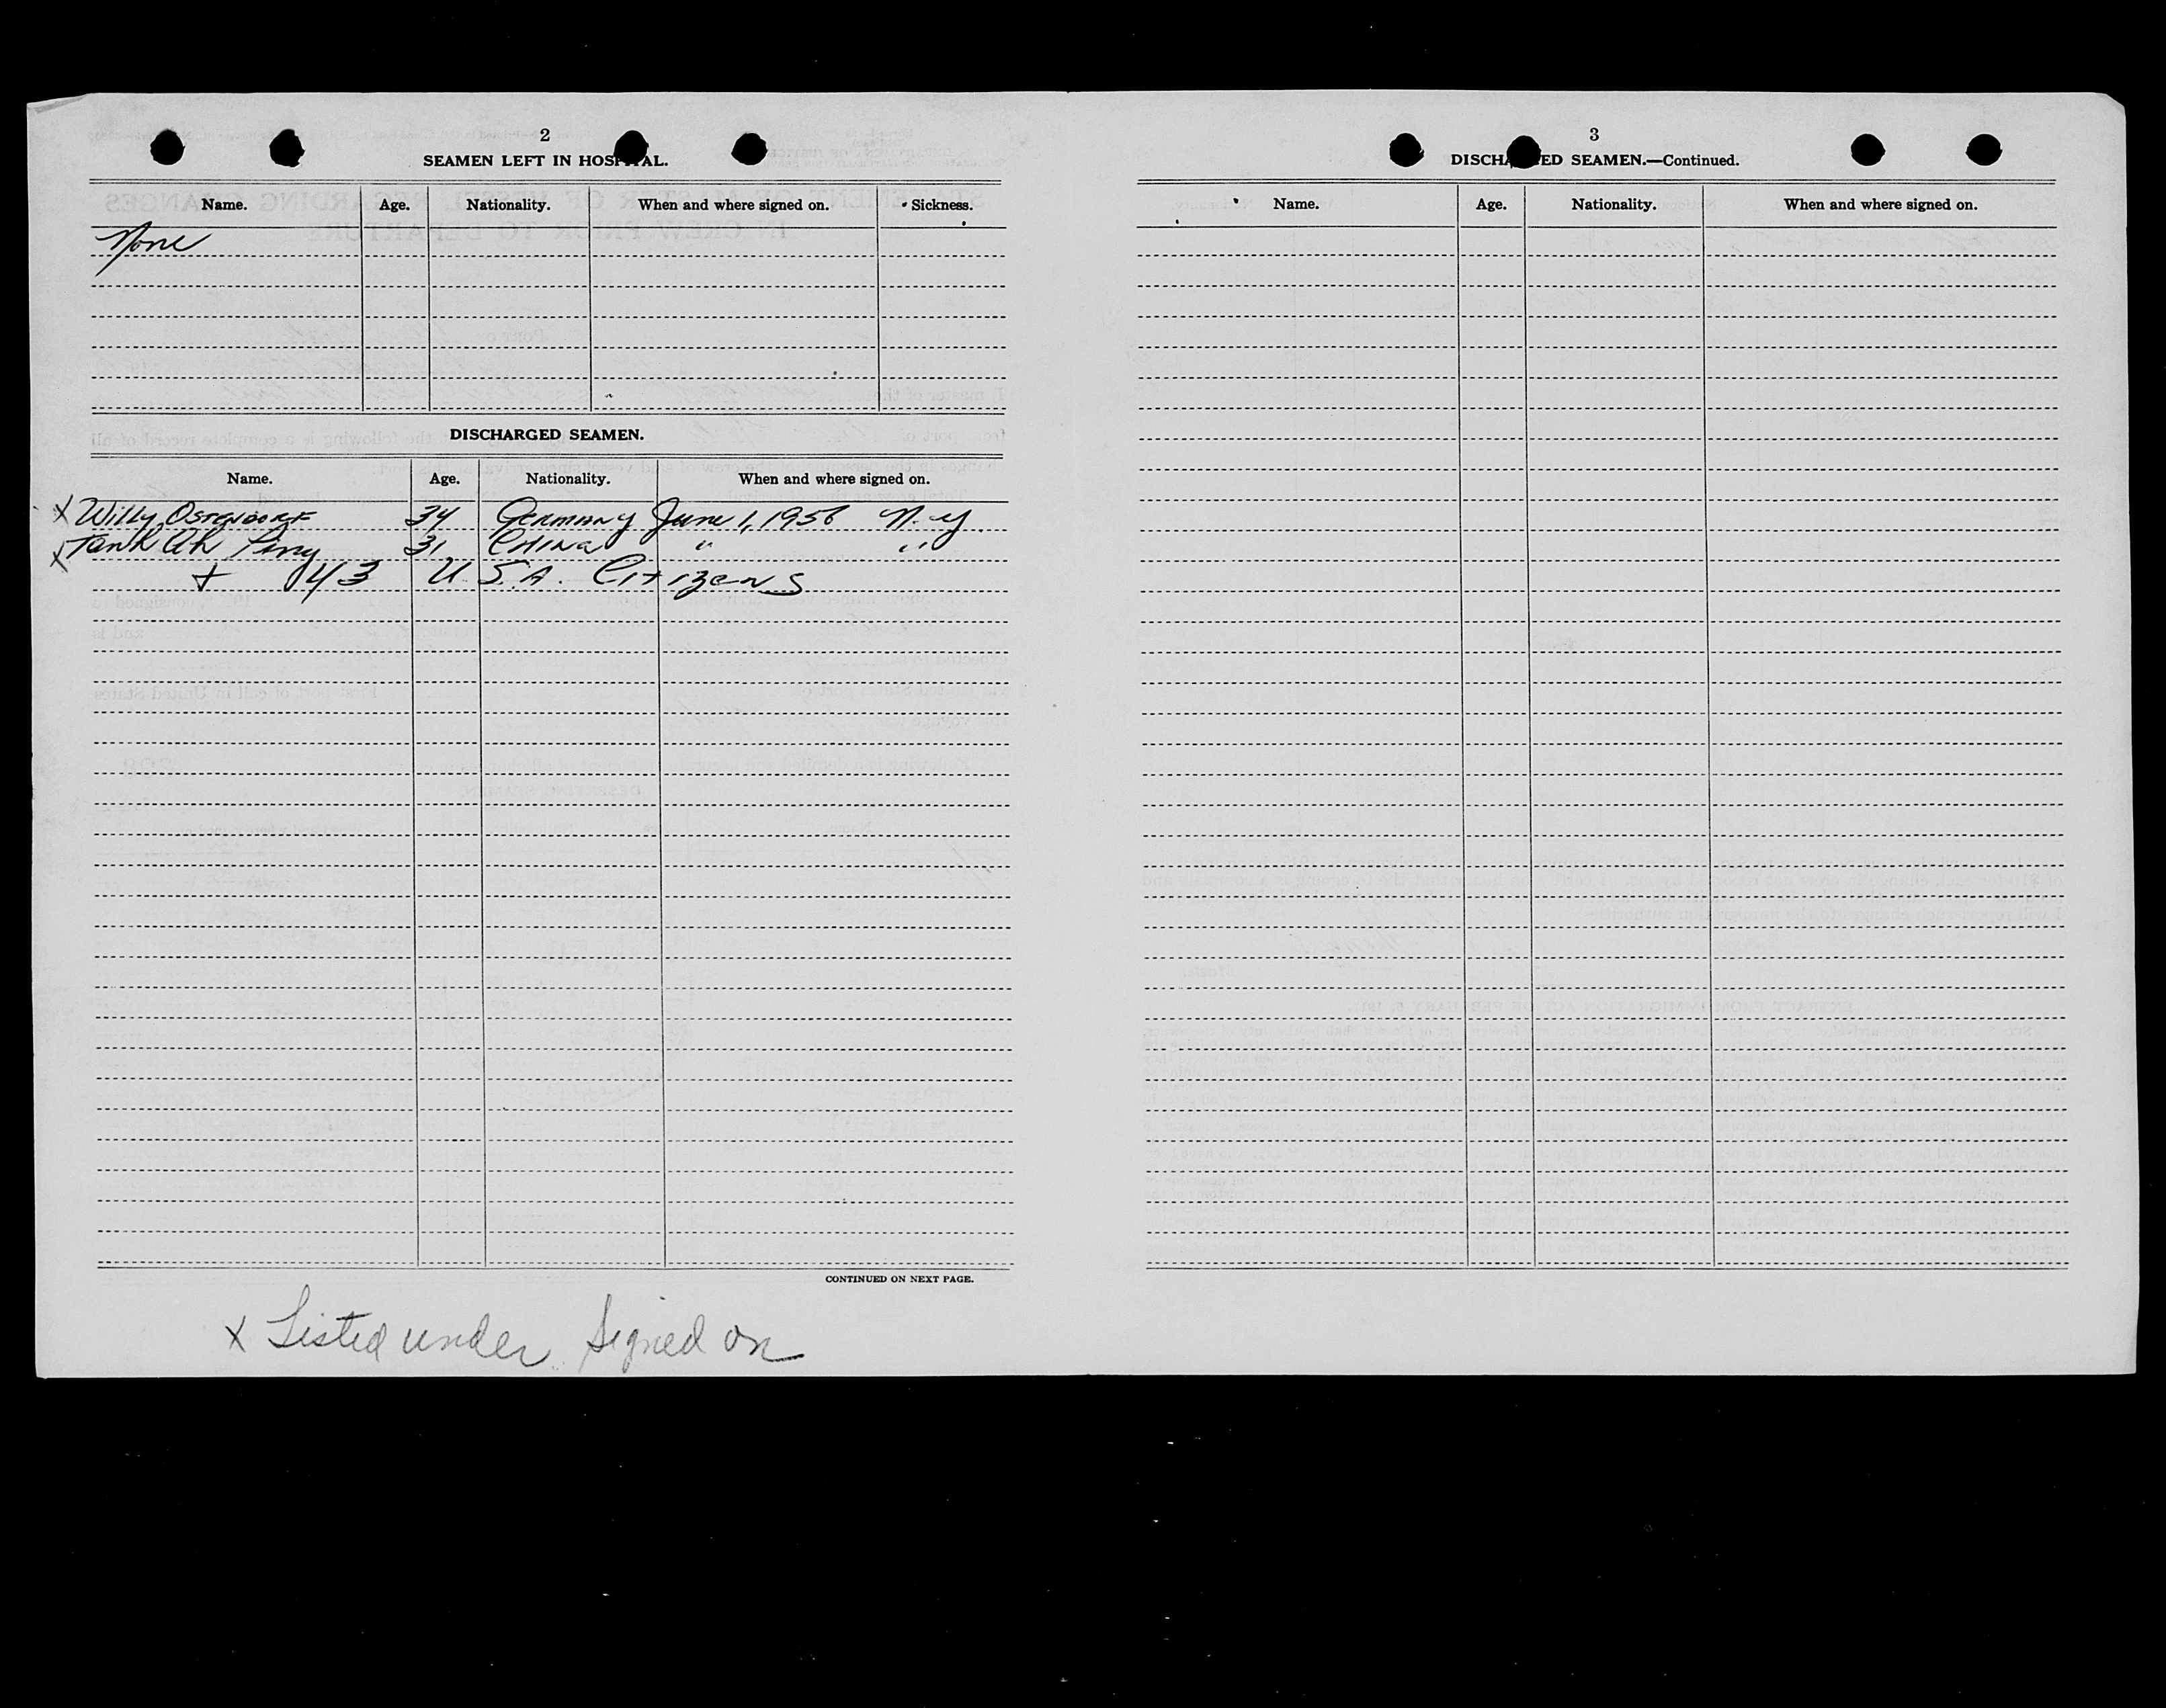 2
SEAMEN LEFT IN HOSPITAL.
Name. Age. Nationality. When and where signed on. Sickness.
None
DISCHARGED SEAMEN.
Name. Age. Nationality. When and where signed on.
x Willy Ostendorf 34 Germany June 1, 1956 N.Y.
x Tank Ah Ping 31 China " "
+ 43 U.S.A. Citizens
CONTINUED ON NEXT PAGE.
x Listed under signed on
3
DISCHARGED SEAMEN.—Continued.
Name. Age. Nationality. When and where signed on.